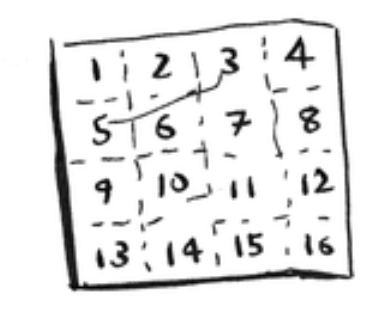 1 2 3 4
5 6 7 8
9 10 11 12
13 14 15 16